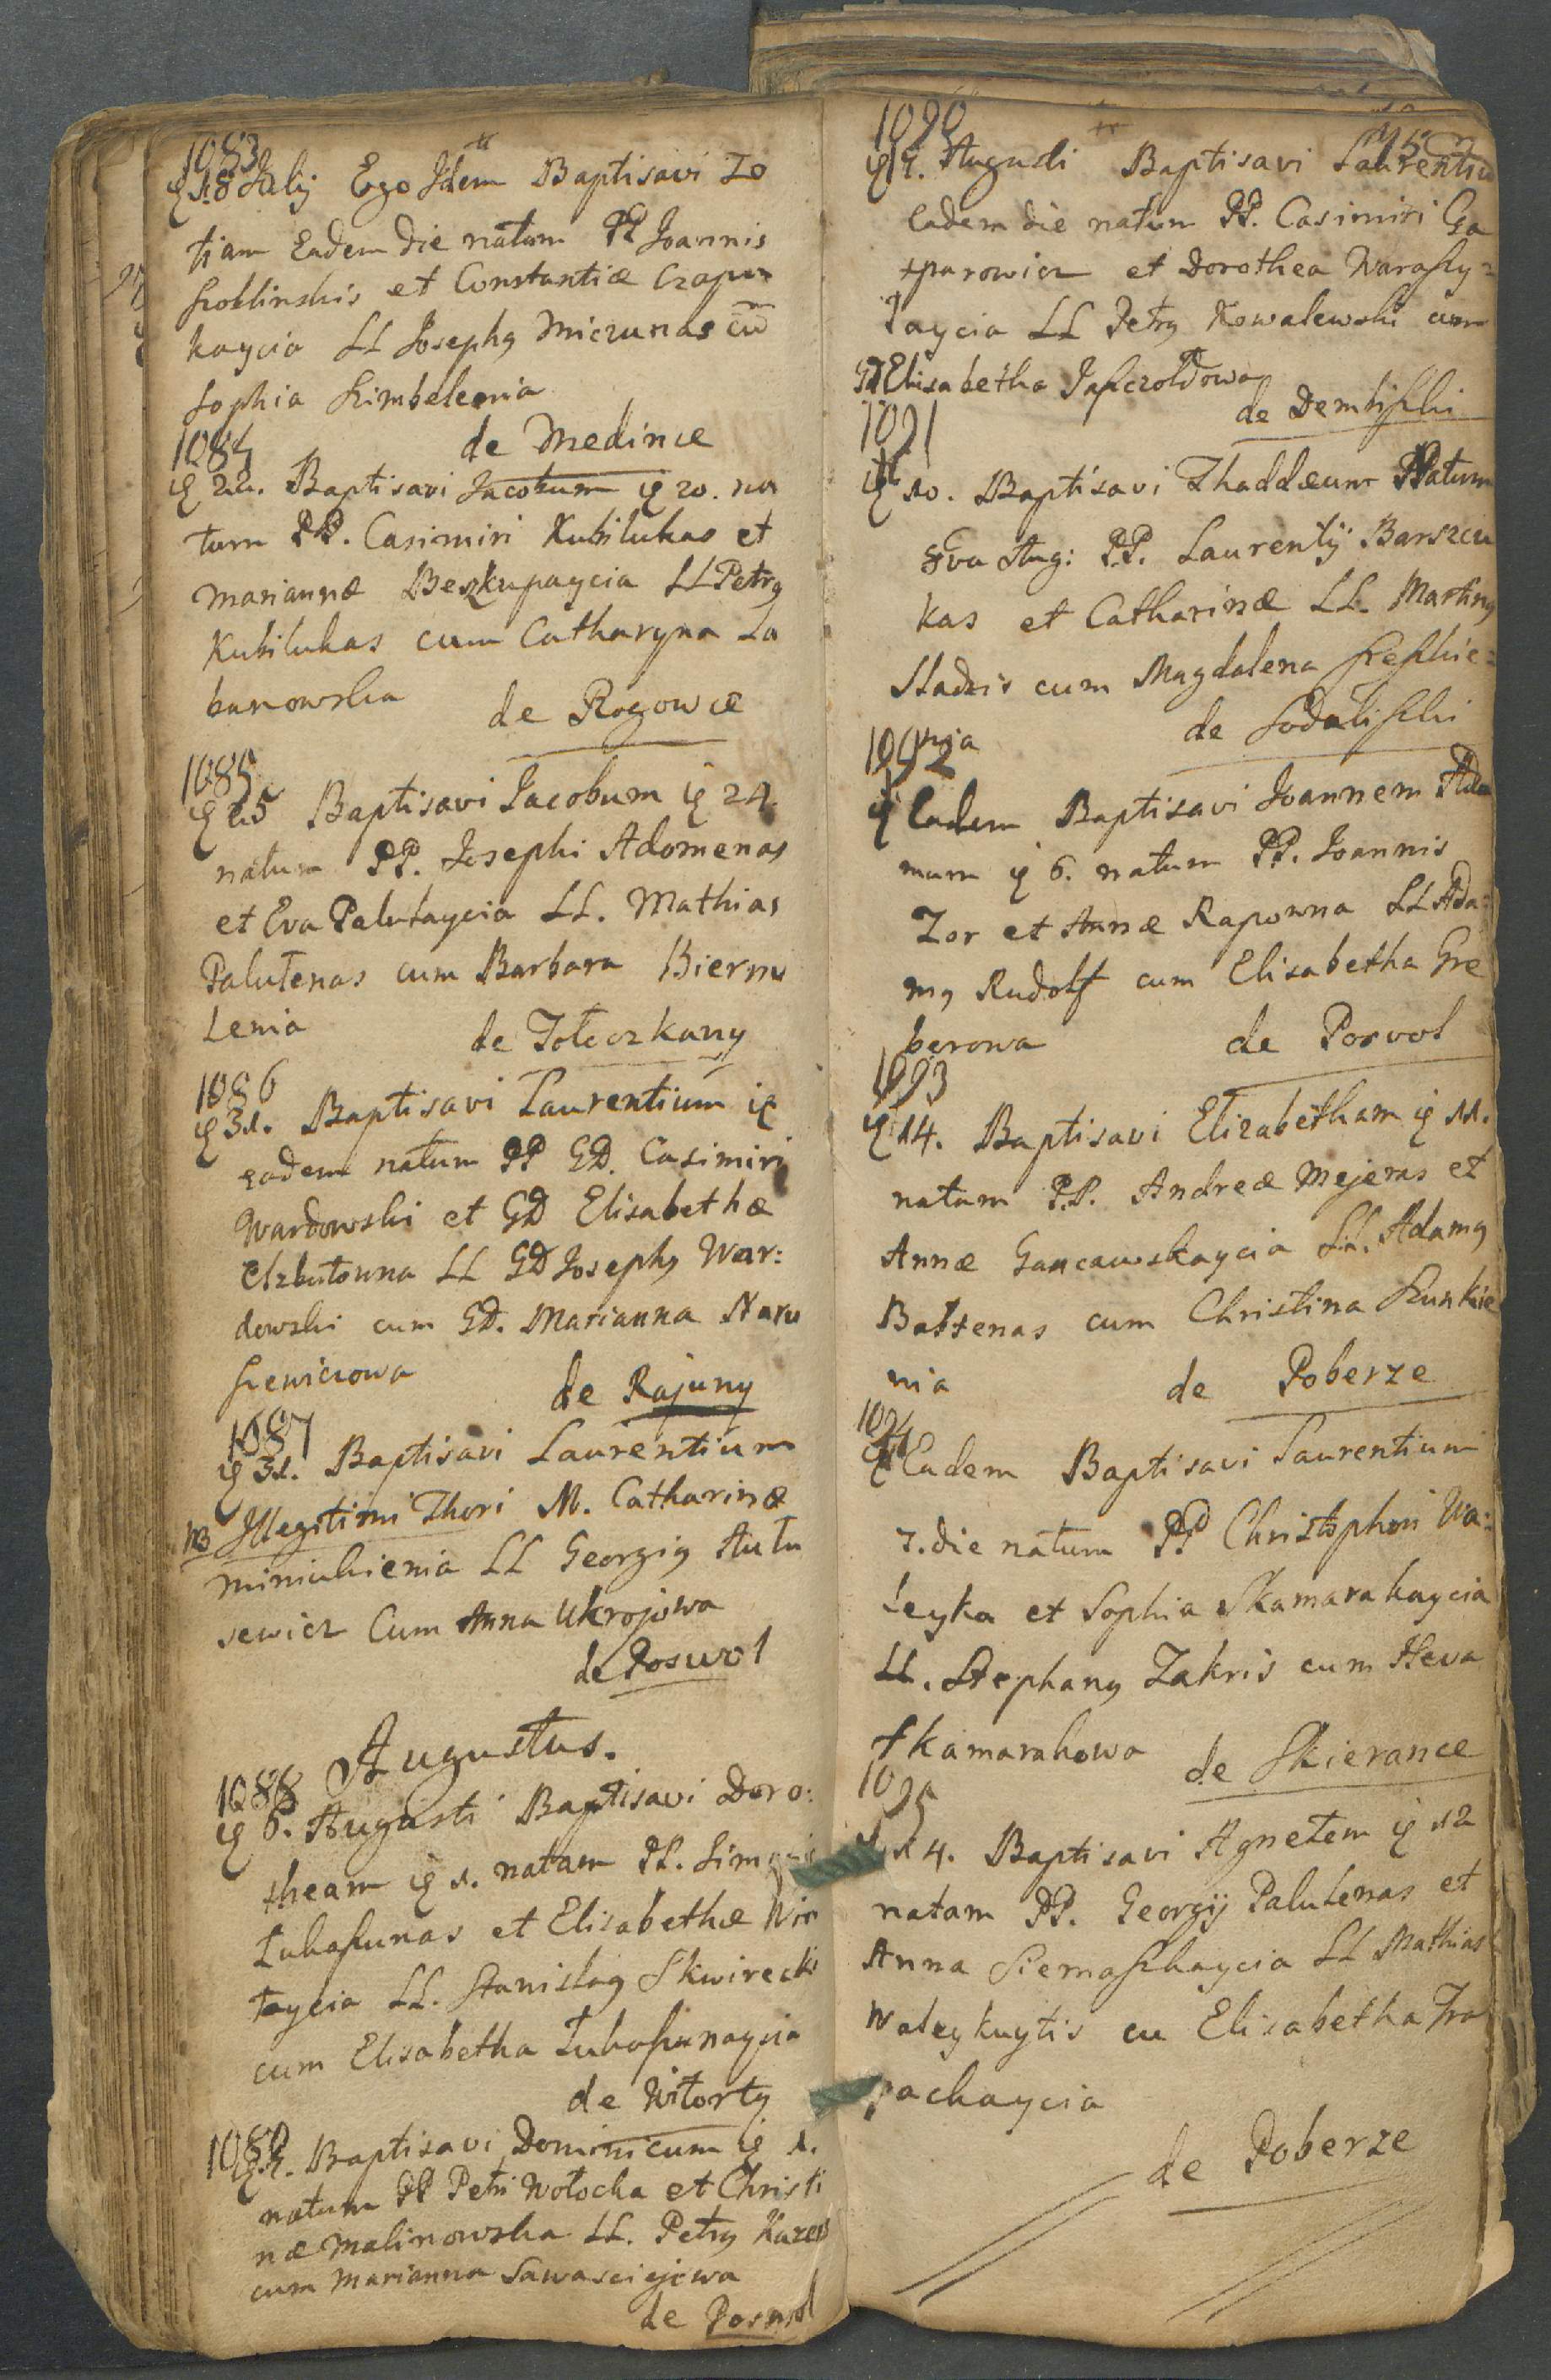 1083
18 Julij Ego Idem Baptisavi Zo
fiam Eadem die natam PP Joannis
et Constantiæ Czapu
kaycia LL Josephg Miczunas cum
Sophia Szimbelenia
de Medince
1084
22. Baptisavi Jacobum 20. na
tum PP. Casimiri Kubilukas et
Mariannæ Beszkupaycia LL Petrg
Kubilukas cum Catharyna La
banowska
de Rogowce
1085
25 Baptisavi Jacobum 24.
natum PP. Josephi Adomenas
et Eva Palutaycia LL. Mathias
Palutenas cum Barbara Biernu
lenia
de Toleczkany
1086
31. Baptisavi Laurentium
eadem natum PP GD. Casimiri
Wardowski et GD Elisabethæ
Elzbutowna LL GD Josephg War:
dowski cum GD. Marianna Naru
szewiczowa
de Rajuny
1087
31. Baptisavi Laurentium
NB Illegitimi Thori M. Catharinæ
Miniukienia LL Georgig Autu
sewicz Cum Anna Ukrojowa
de Posuol
Augustus.
1088
6. Augusti Baptisavi Doro:
theam 1. natam PP. Simonis
Lukaszunas et Elisabethæ Win
taycia LL. Stanislag Skwirecki
cum Elisabetha Lukaszunaycia
de Witorty
1089
Baptisavi Dominicum 1.
natum PP Petri Wołocka et Christi
næ Malinowska LL. Petrg
cum Marianna Sawasciejowa
de Posuol
1090
Augusti Baptisavi Laurentiu
Eadem die natum PP. Casimiri Ga
sparowicz et Dorothea Waraszy=
laycia LL Petrg Kowalewski cum
GD Elisabetha Jaszczołdowa
de Dembiszki
1091
10. Baptisavi Thaddæum Natum
8va Aug: PP. Laurentij Barszciu
kas et Catharinæ LL. Marting
Stadzis cum Magdalena Szeszkie=
nia
de Sodaliszki
1092
Eadem Baptisavi Joannem Ada
mum 6. natum PP. Joannis
Zor et Annæ Rapowna LL Ada=
mg Rudolf cum Elisabetha Gre
berowa
de Posvol
1093
14. Baptisavi Elizabetham 11.
natam P.P. Andreæ Mejeras et
Annæ Gancewskaycia LL. Adamg
Baltenas cum Christina Kunkie
nia
de Poberze
1094
Eadem Baptisavi Laurentium
7. die natum PP Christophori Wa:
leyka et Sophia Skamarakaycia
LL. Stephang Zakris cum Heva
Skamarakowa
de Skierance
1095
14. Baptisavi Agnetem 12
natam PP. Georgij Palutenas et
Anna Siemaszkaycia LL Mathias
Waleykuytis cu Elisabetha Tra
packaycia
de Poberze